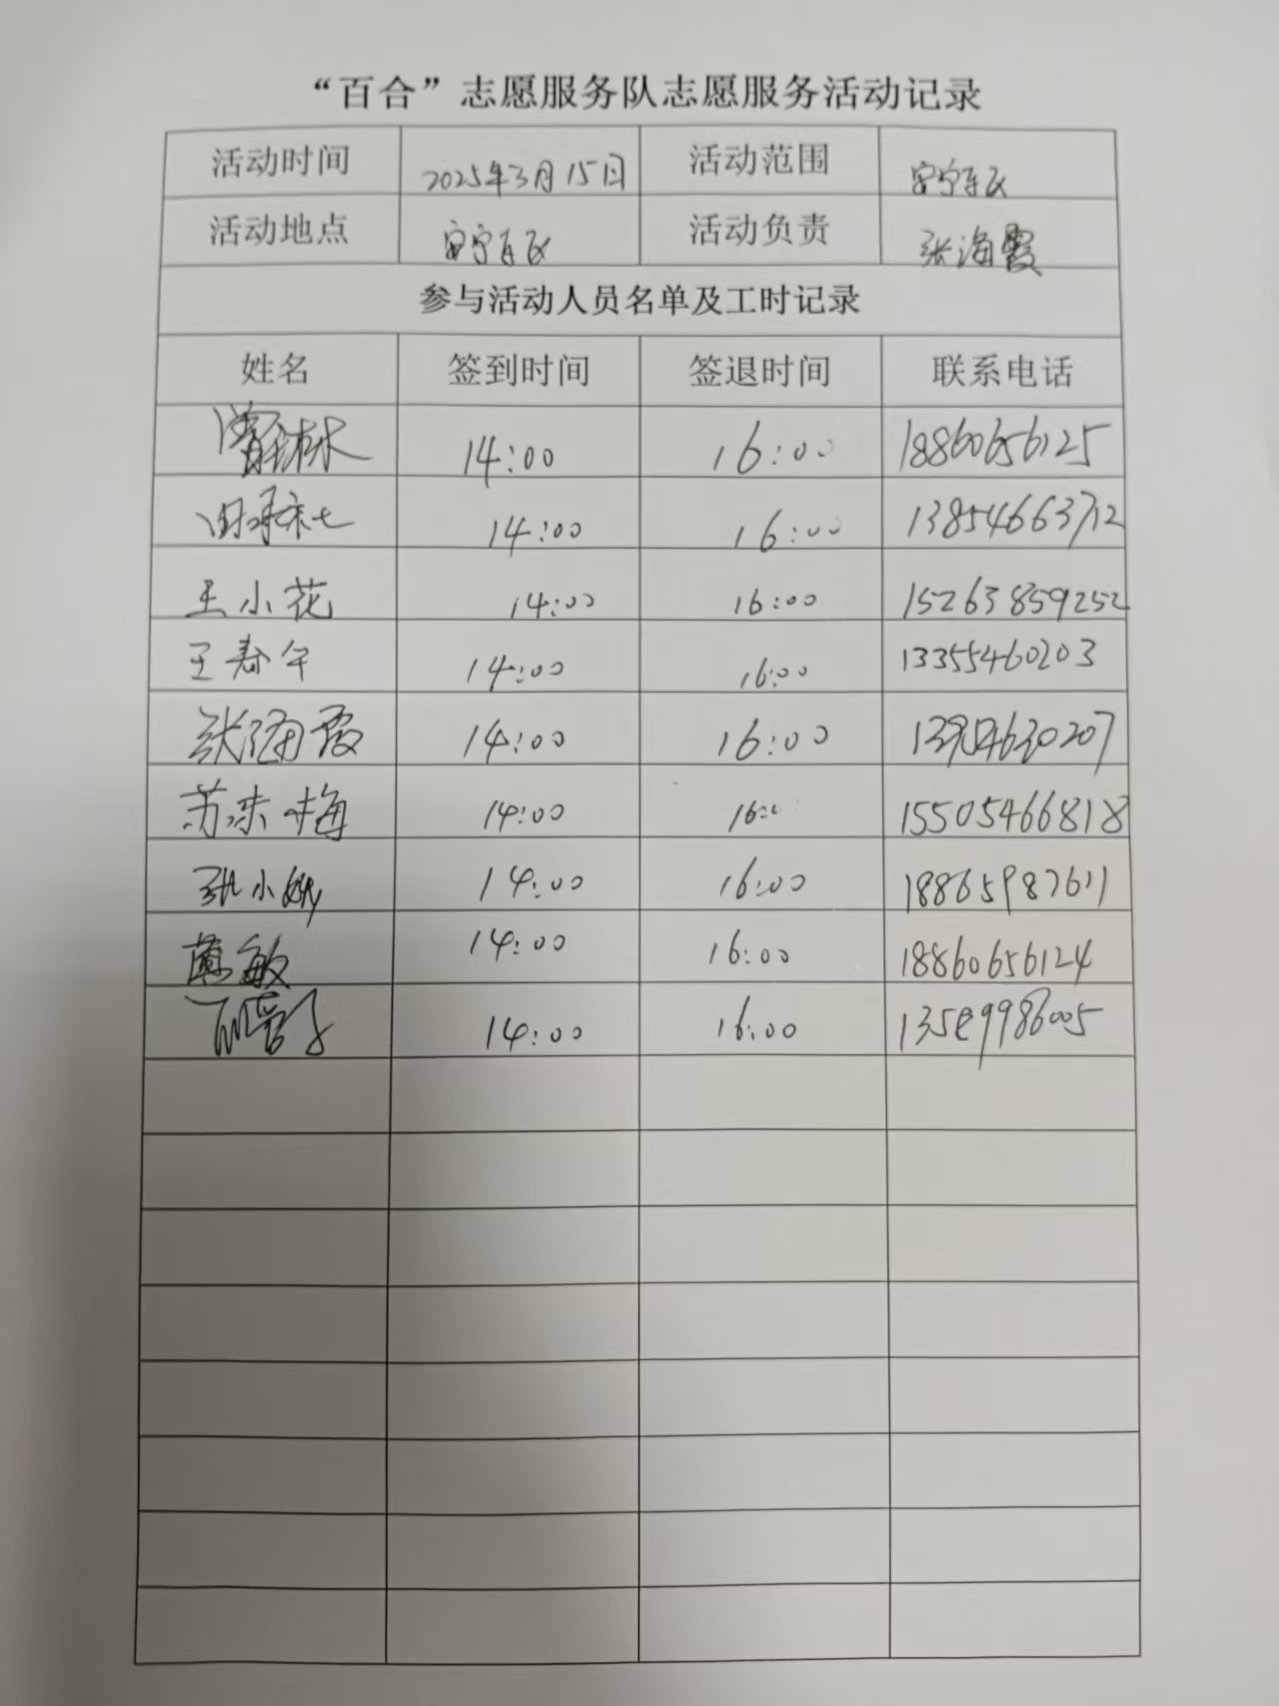 “百合”志愿服务队志愿服务活动记录
活动时间 2025年3月15日 活动范围
活动地点 活动负责 张海霞
参与活动人员名单及工时记录
姓名 签到时间 签退时间 联系电话
14:00 16:00 18860656125
14:00 16:00 13854663712
王小花 14:00 16:00 15263859252
王春午 14:00 16:00 13355460203
张海霞 14:00 16:00
苏东梅 14:00 15505466818
14:00 16:00 18865987611
敏 14:00 16:00 18860656124
14:00 16:00